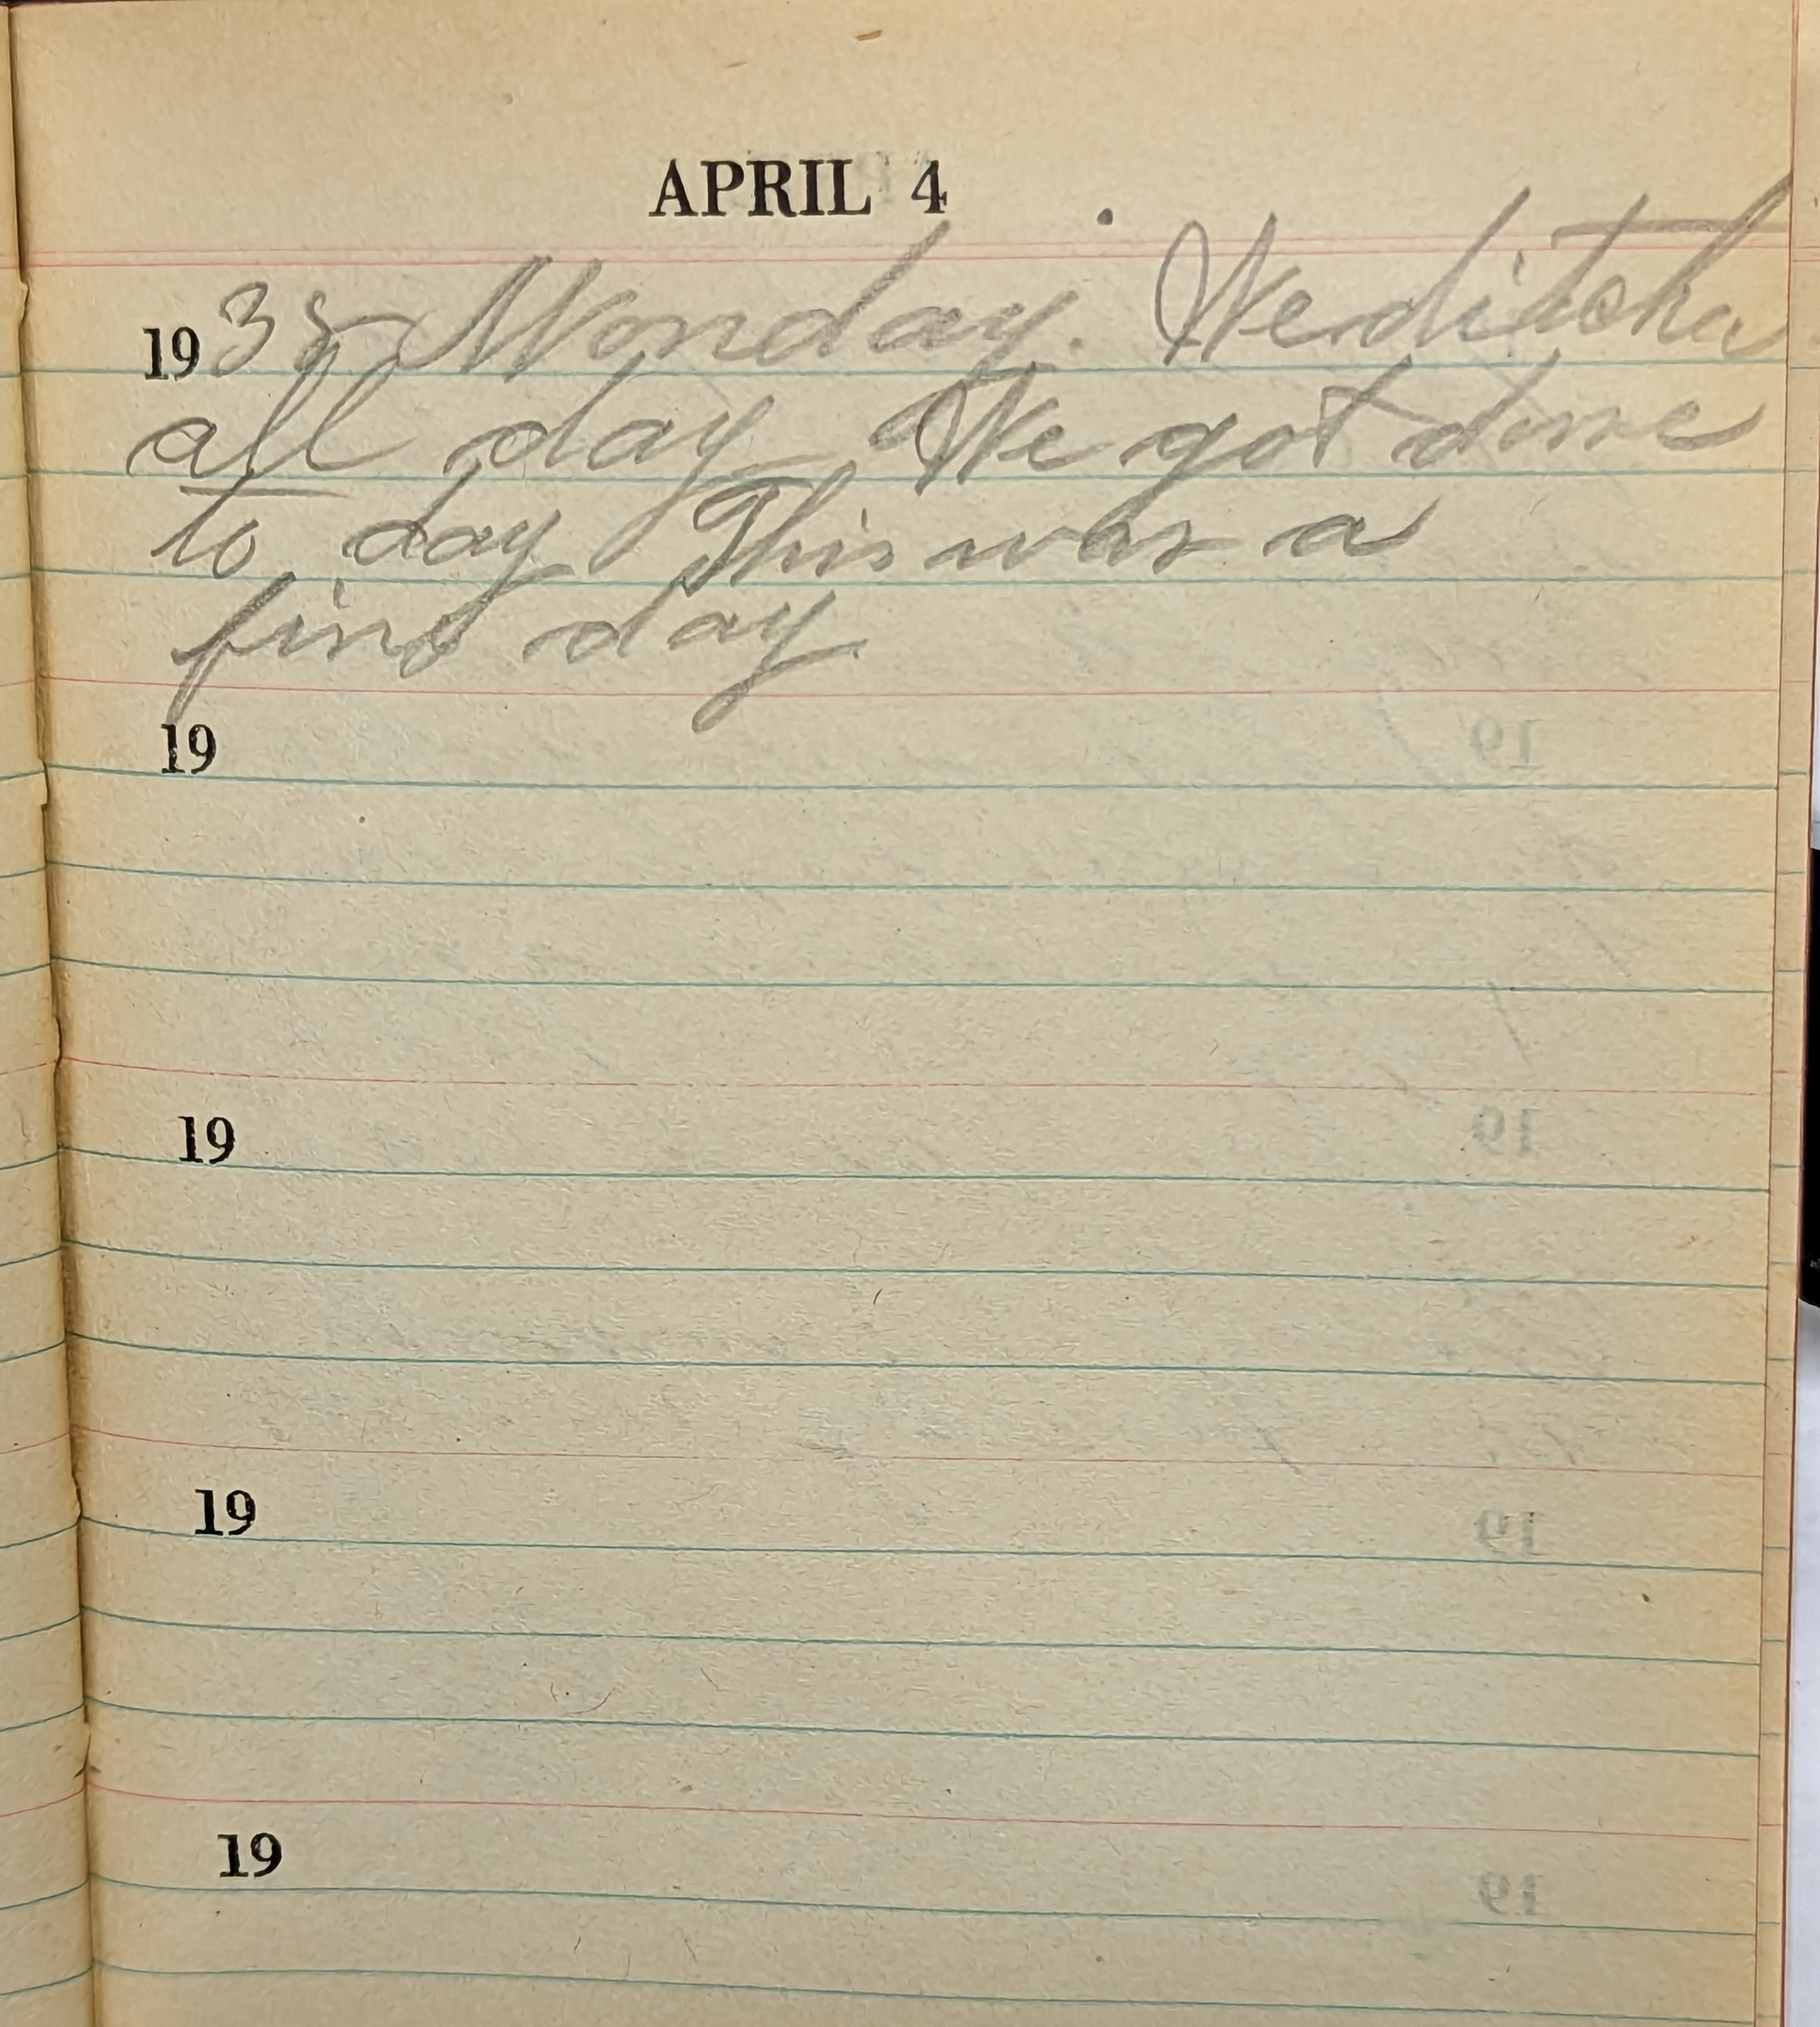 APRIL 4
1938 Monday. We ditched
all day We got done
to day This was a
fine day.
19
19
19
19